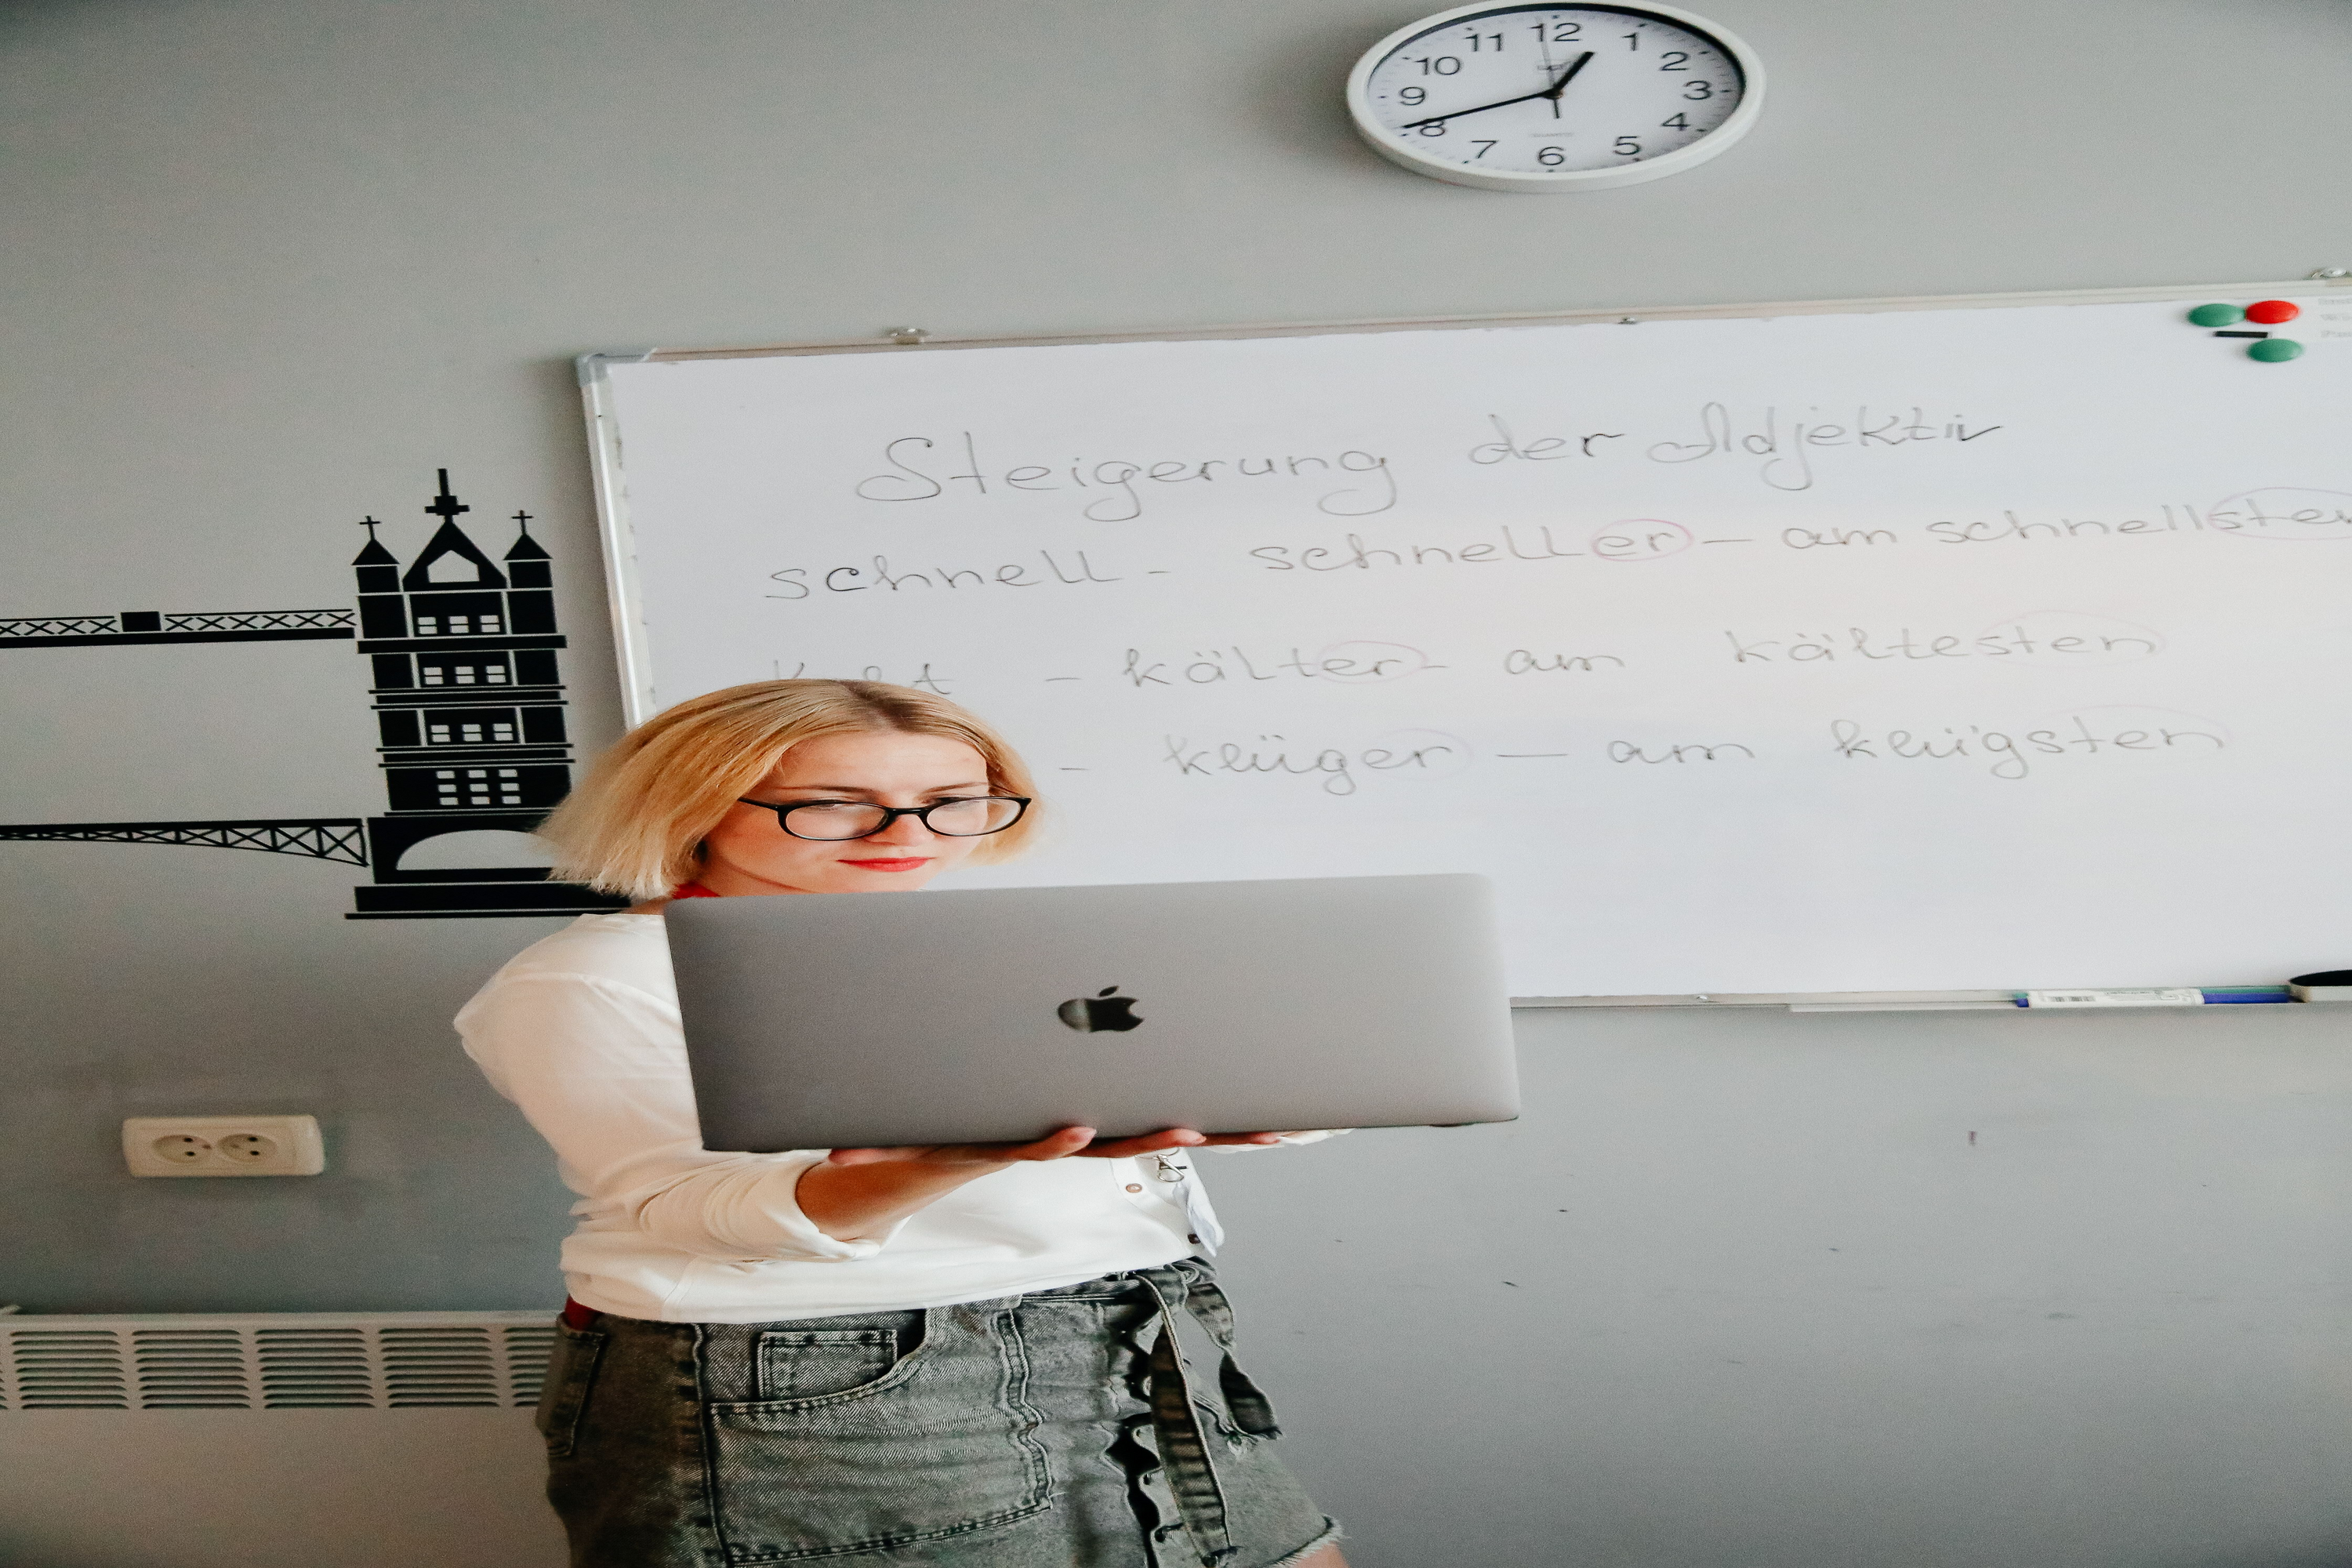 11 12 1
10 2
9 3
8 4
7 6 5
Steigerung der Adjektiv
schnell - schneller - am schnellsten
- kälter - am kältesten
- klüger - am klügsten